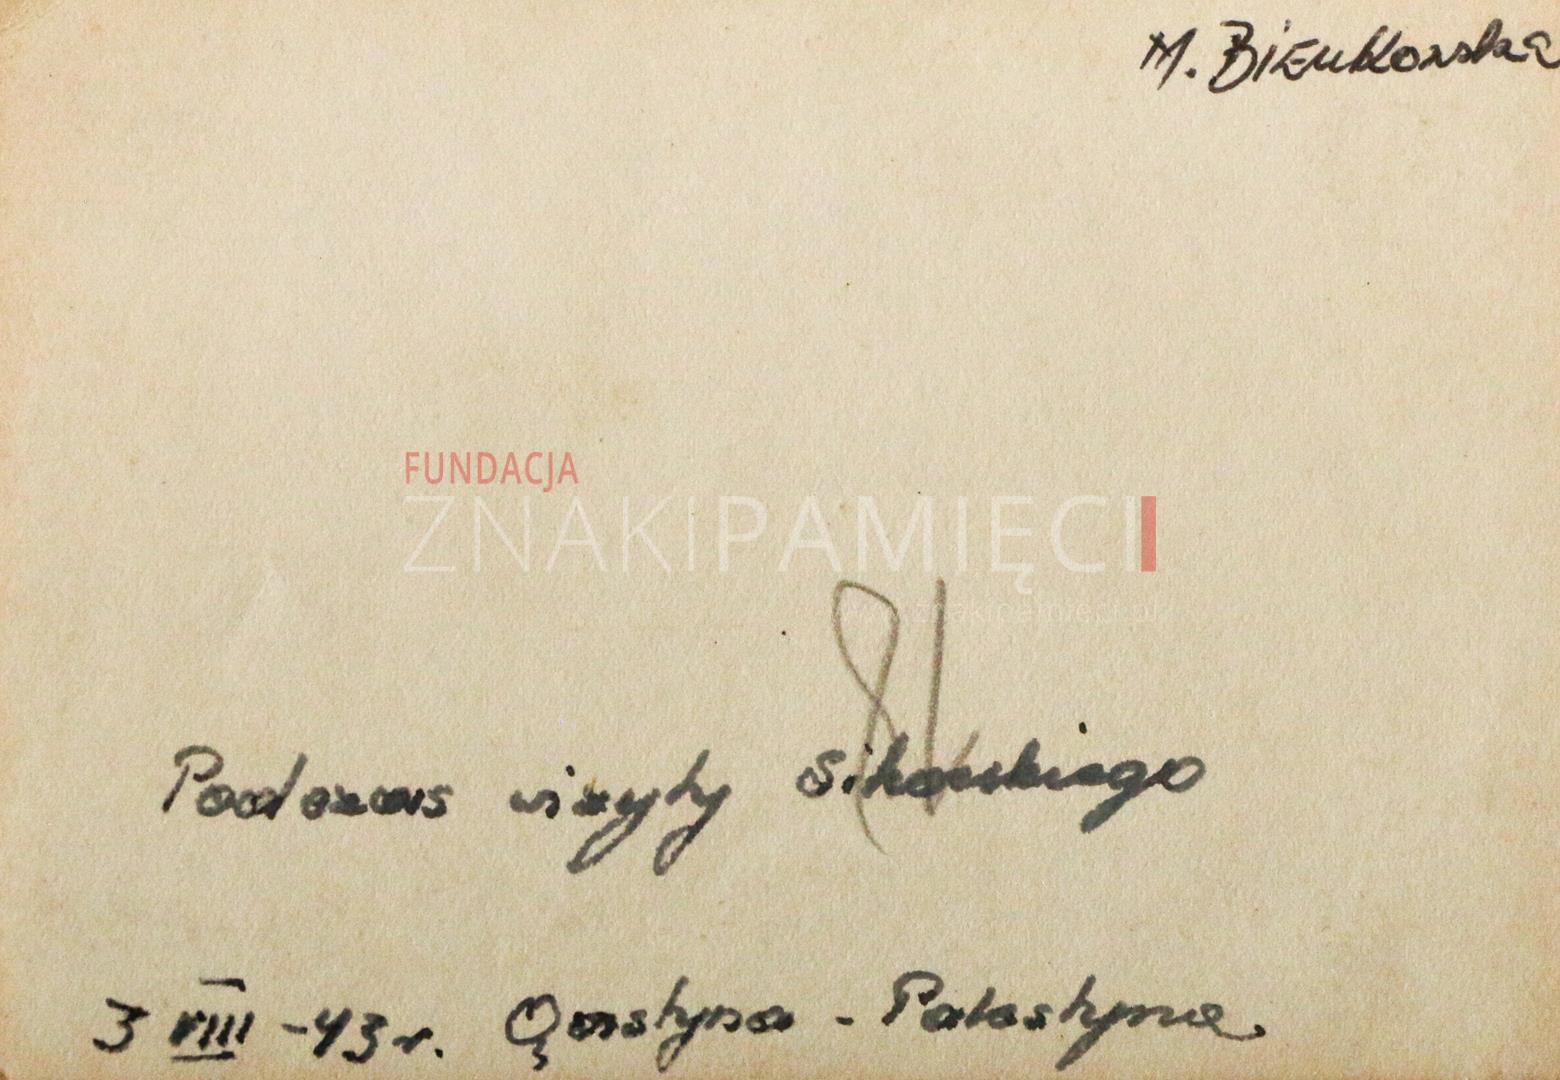 M. Bieńkowska
FUNDACJA
ZNAKIPAMIĘCI
www.znakipamieci.pl
Podczas wizyty Sikorskiego
3 VIII -43 r. Qastyna - Palestyna